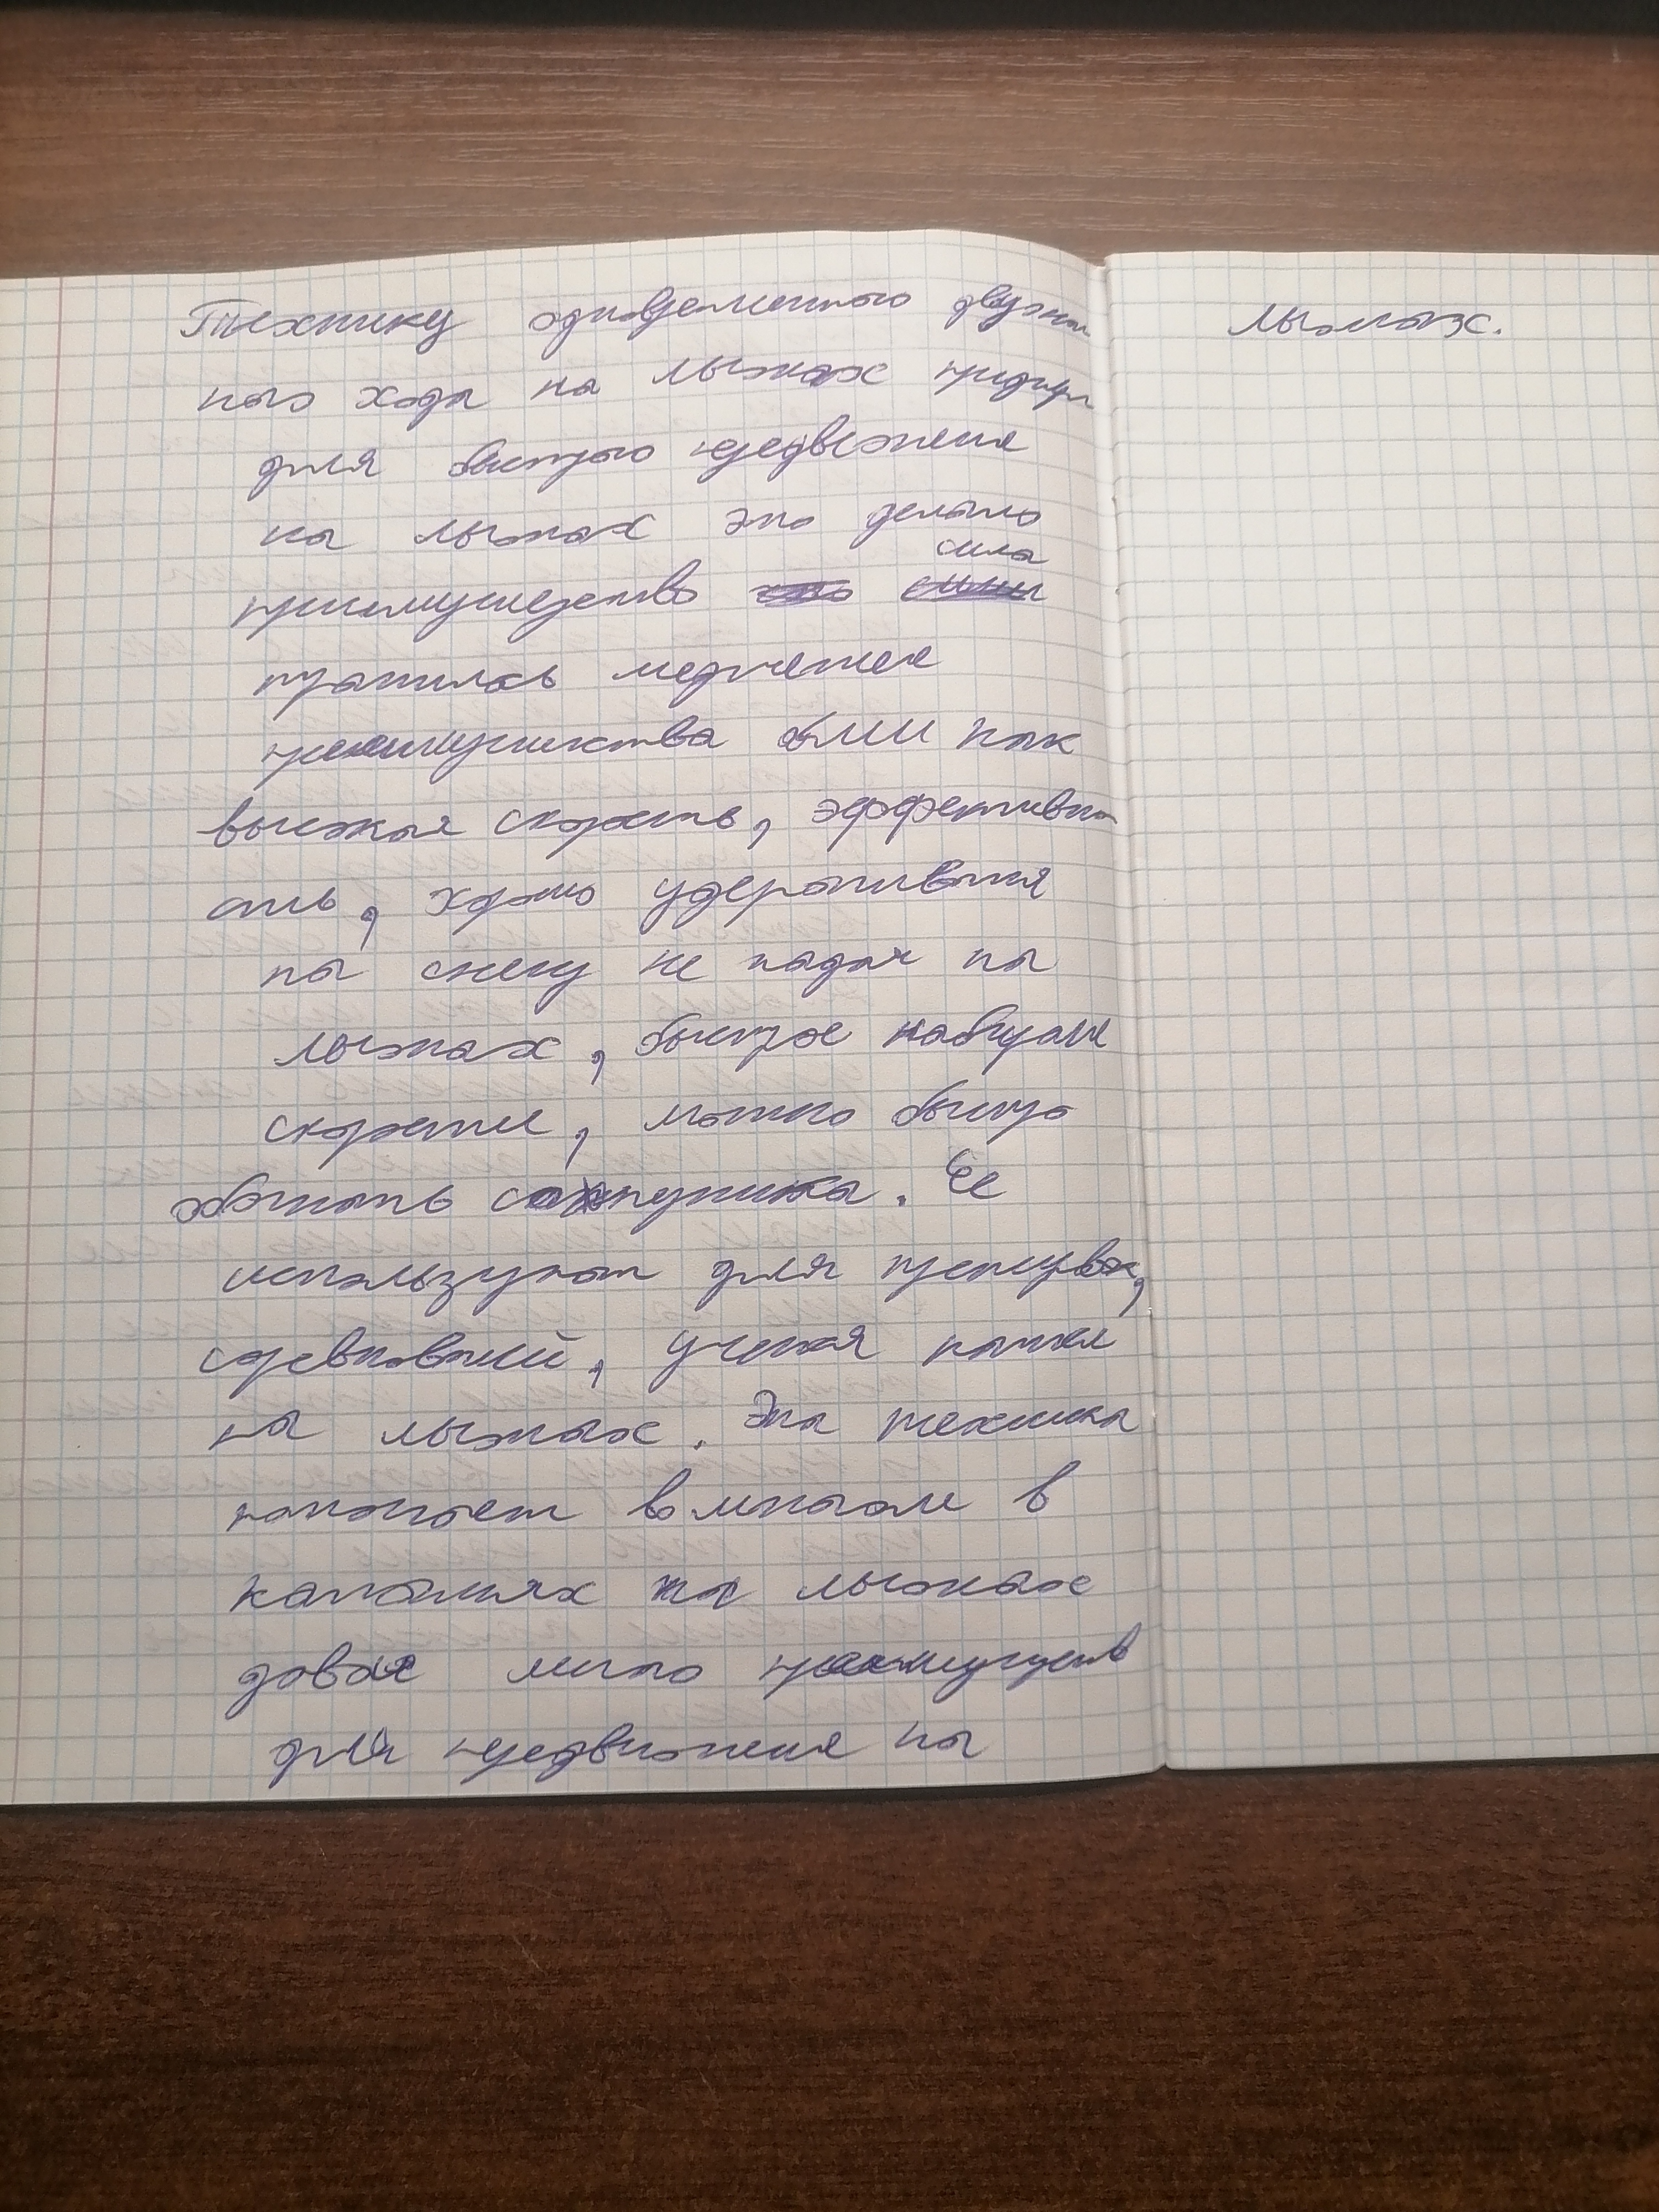 Технику одновременного двухша
ного хода на лыжах придум
для быстрого передвежения
на лыжах это делало
преимущедство сила
тратилась медленее
преимушества были как
высокая скорость, эффективно
сть, хорошо удерживания
на снегу не падая на
лыжах, быстрое набирание
скорости, можно быстро
обогнать сопутника. Ее
используют для тренировок,
соревнований, учения катания
на лыжах. Эта техника
помогает во многом в
катаниях на лыжах
давая много преимуществ
для передвижения на
лыжах.